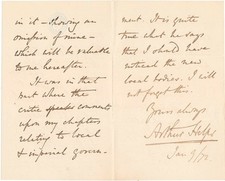 in it - showing an
omission of mine -
which will be valuable
to me hereafter.
It was in that
part where the
critic speaks comments
upon my chapters
relating to local
& imperial govern-
ment. It is quite
true what he says
that I should have
noticed the new
local bodies. I will
not forget this.
Yours always
Arthur Helps
Jan 9/72